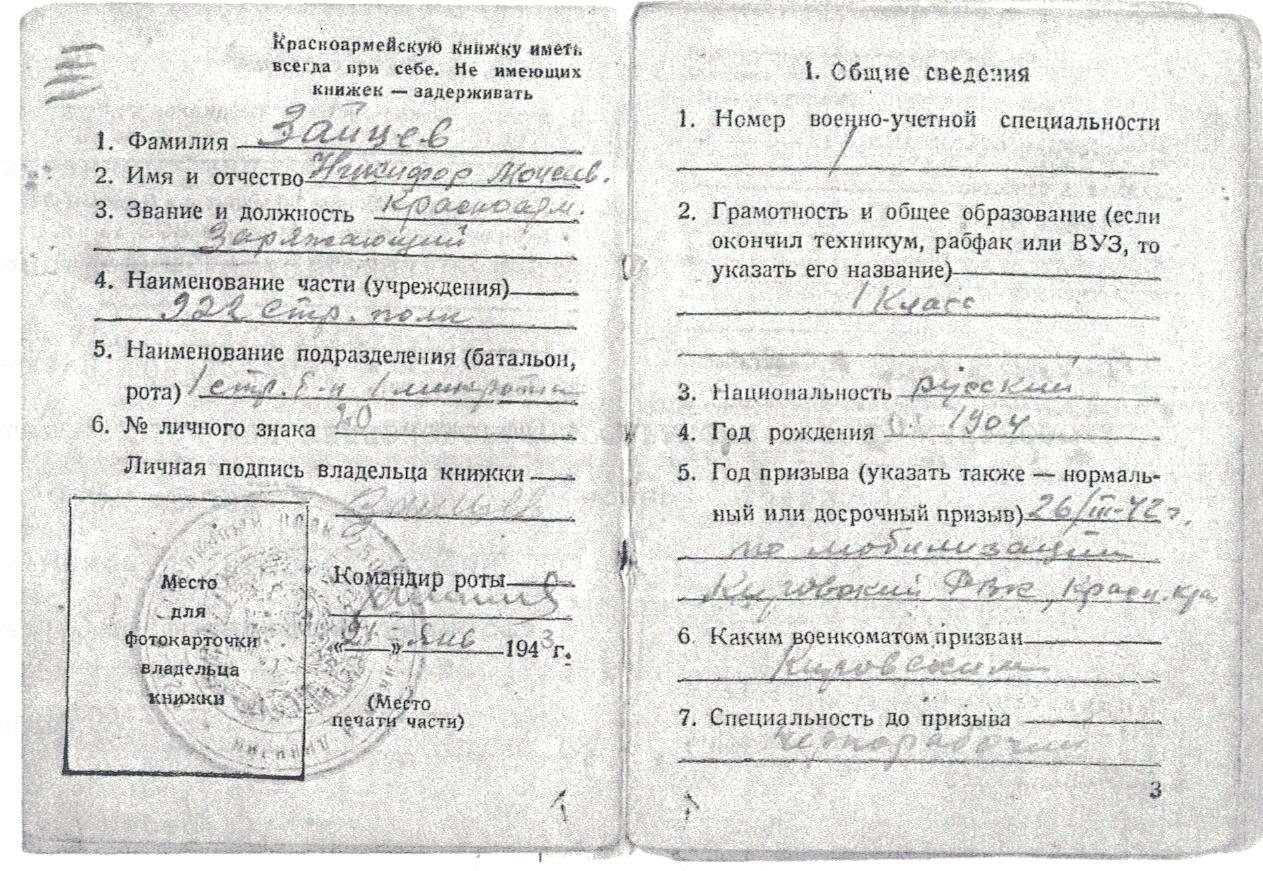 Красноармейскую книжку иметь
всегда при себе. Не имеющих
книжек — задерживать
1. Фамилия Зайцев
2. Имя и отчество Никифор Моисеев.
3. Звание и должность Красноарм.
Заряжающий
4. Наименование части (учреждения)
922 стр. полк
5. Наименование подразделения (батальон,
рота) 1 стр. б-н 1 минрота
6. № личного знака 20
Личная подпись владельца книжки
Зайцев
Место
для
фотокарточки
владельца
книжки
Командир роты
«21» Янв 1943 г.
(Место
печати части)
I. Общие сведения
1. Номер военно-учетной специальности
2. Грамотность и общее образование (если
окончил техникум, рабфак или ВУЗ, то
указать его название)
1 Класс
3. Национальность русский
4. Год рождения 1904
5. Год призыва (указать также — нормаль-
ный или досрочный призыв) 26/III-42 г.
по мобилизации
Кировский РВК, Красн. кра
6. Каким военкоматом призван
Кировским
7. Специальность до призыва
Чернорабочий
3